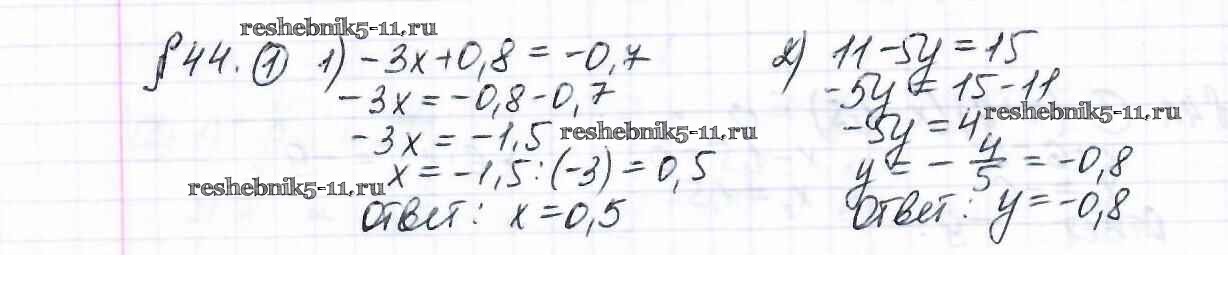 reshebnik5-11.ru
§ 44. ① 1) -3x+0,8 = -0,7
-3x = -0,8-0,7
-3x = -1,5 reshebnik5-11.ru
x = -1,5:(-3) = 0,5
reshebnik5-11.ru
Ответ: x = 0,5
2) 11-5y = 15
-5y = 15-11
-5y = 4 reshebnik5-11.ru
y = - 4/5 = -0,8
Ответ: y = -0,8